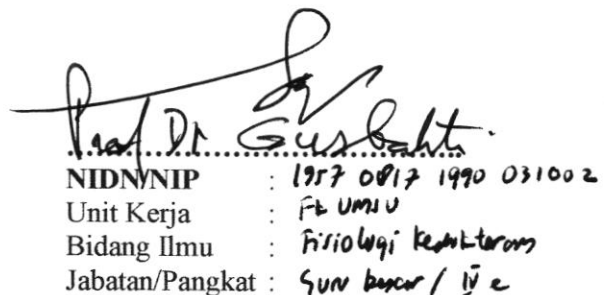 Prof Dr Gusbakti
NIDN/NIP : 1957 0817 1990 031002
Unit Kerja : FK UMSU
Bidang Ilmu : Fisiologi Kedokteran
Jabatan/Pangkat : Guru besar / IV e